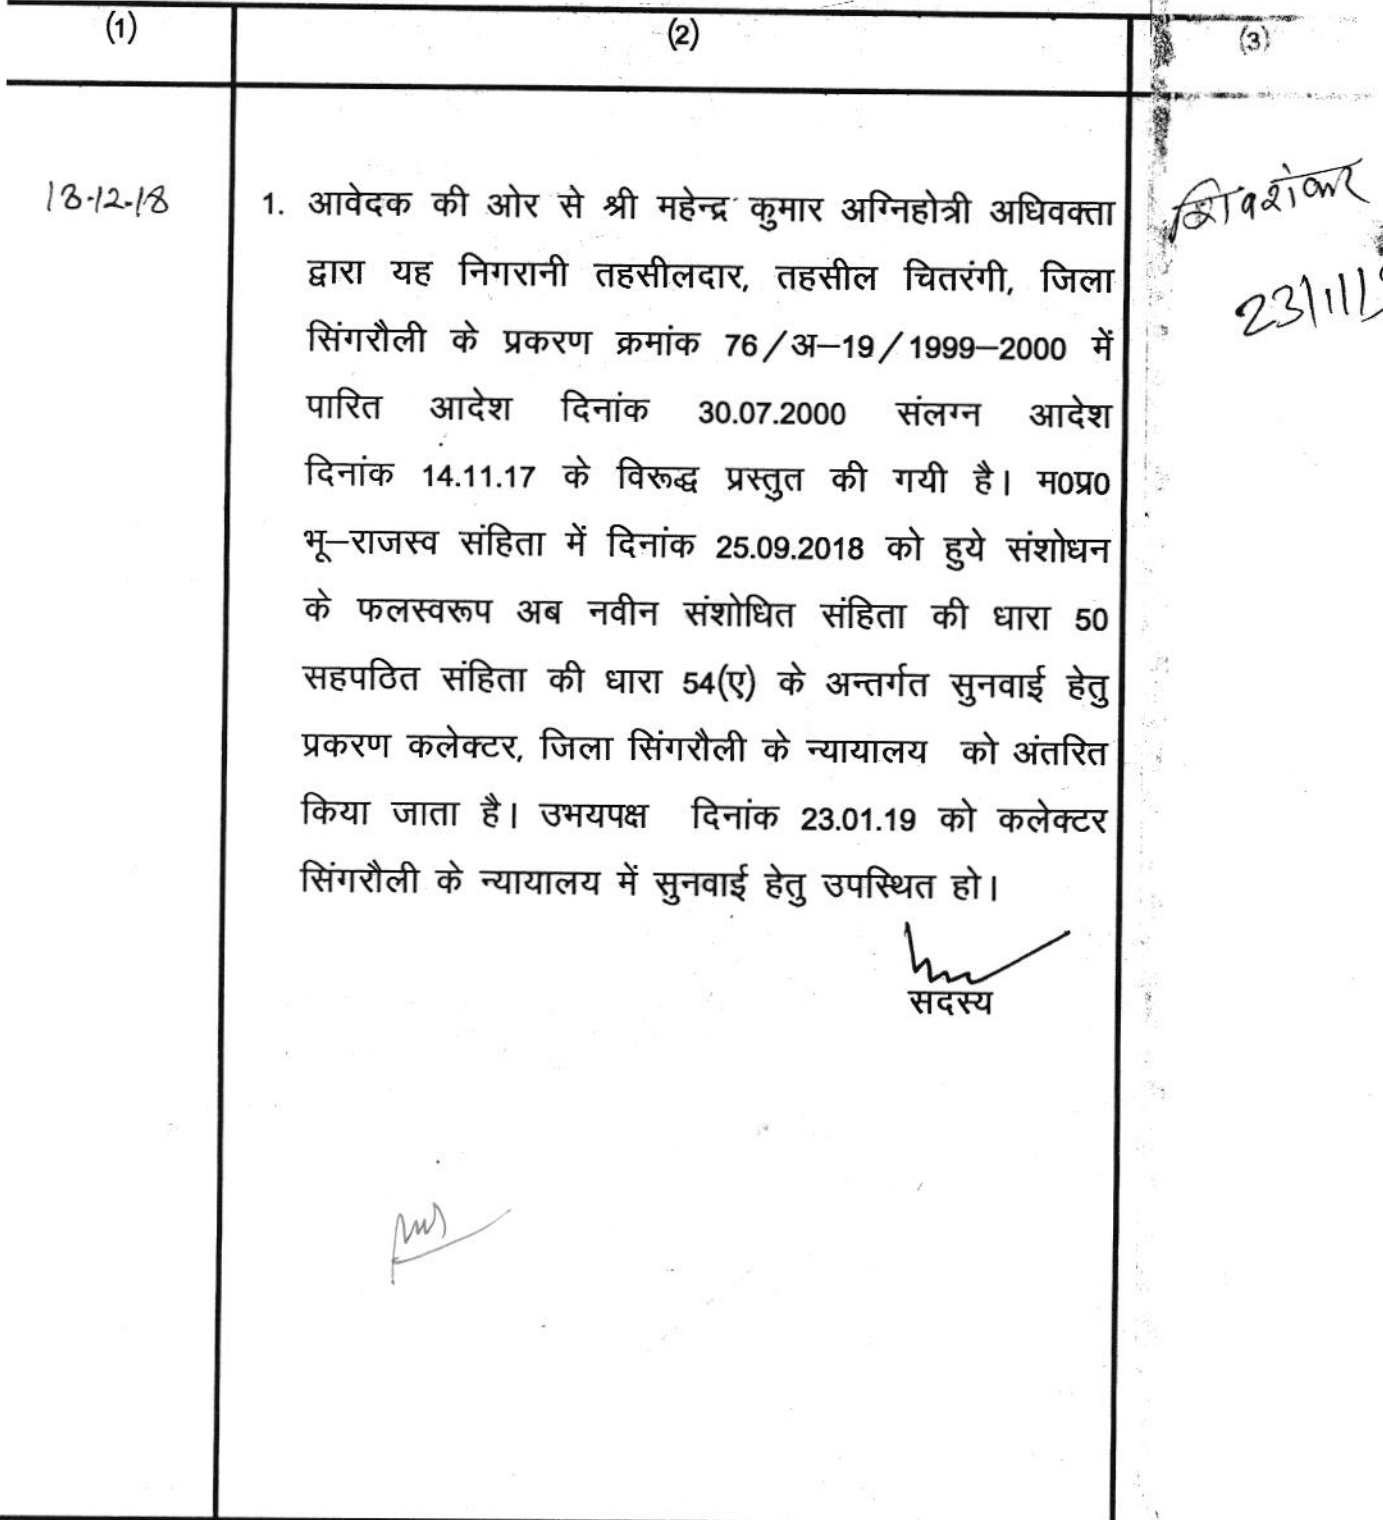 (1) (2) (3)
18-12-18
1. आवेदक की ओर से श्री महेन्द्र कुमार अग्निहोत्री अधिवक्ता
द्वारा यह निगरानी तहसीलदार, तहसील चितरंगी, जिला
सिंगरौली के प्रकरण क्रमांक 76/अ–19/1999–2000 में
पारित आदेश दिनांक 30.07.2000 संलग्न आदेश
दिनांक 14.11.17 के विरूद्ध प्रस्तुत की गयी है। म0प्र0
भू–राजस्व संहिता में दिनांक 25.09.2018 को हुये संशोधन
के फलस्वरूप अब नवीन संशोधित संहिता की धारा 50
सहपठित संहिता की धारा 54(ए) के अन्तर्गत सुनवाई हेतु
प्रकरण कलेक्टर, जिला सिंगरौली के न्यायालय को अंतरित
किया जाता है। उभयपक्ष दिनांक 23.01.19 को कलेक्टर
सिंगरौली के न्यायालय में सुनवाई हेतु उपस्थित हो।
सदस्य
शिवशंकर